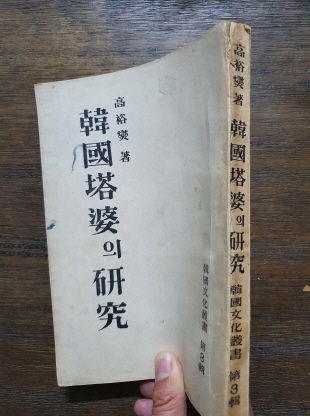 高裕燮 著
韓國塔婆의 研究
韓國文化叢書 第3輯
高裕燮 著 韓國塔婆의 研究 韓國文化叢書 第3輯